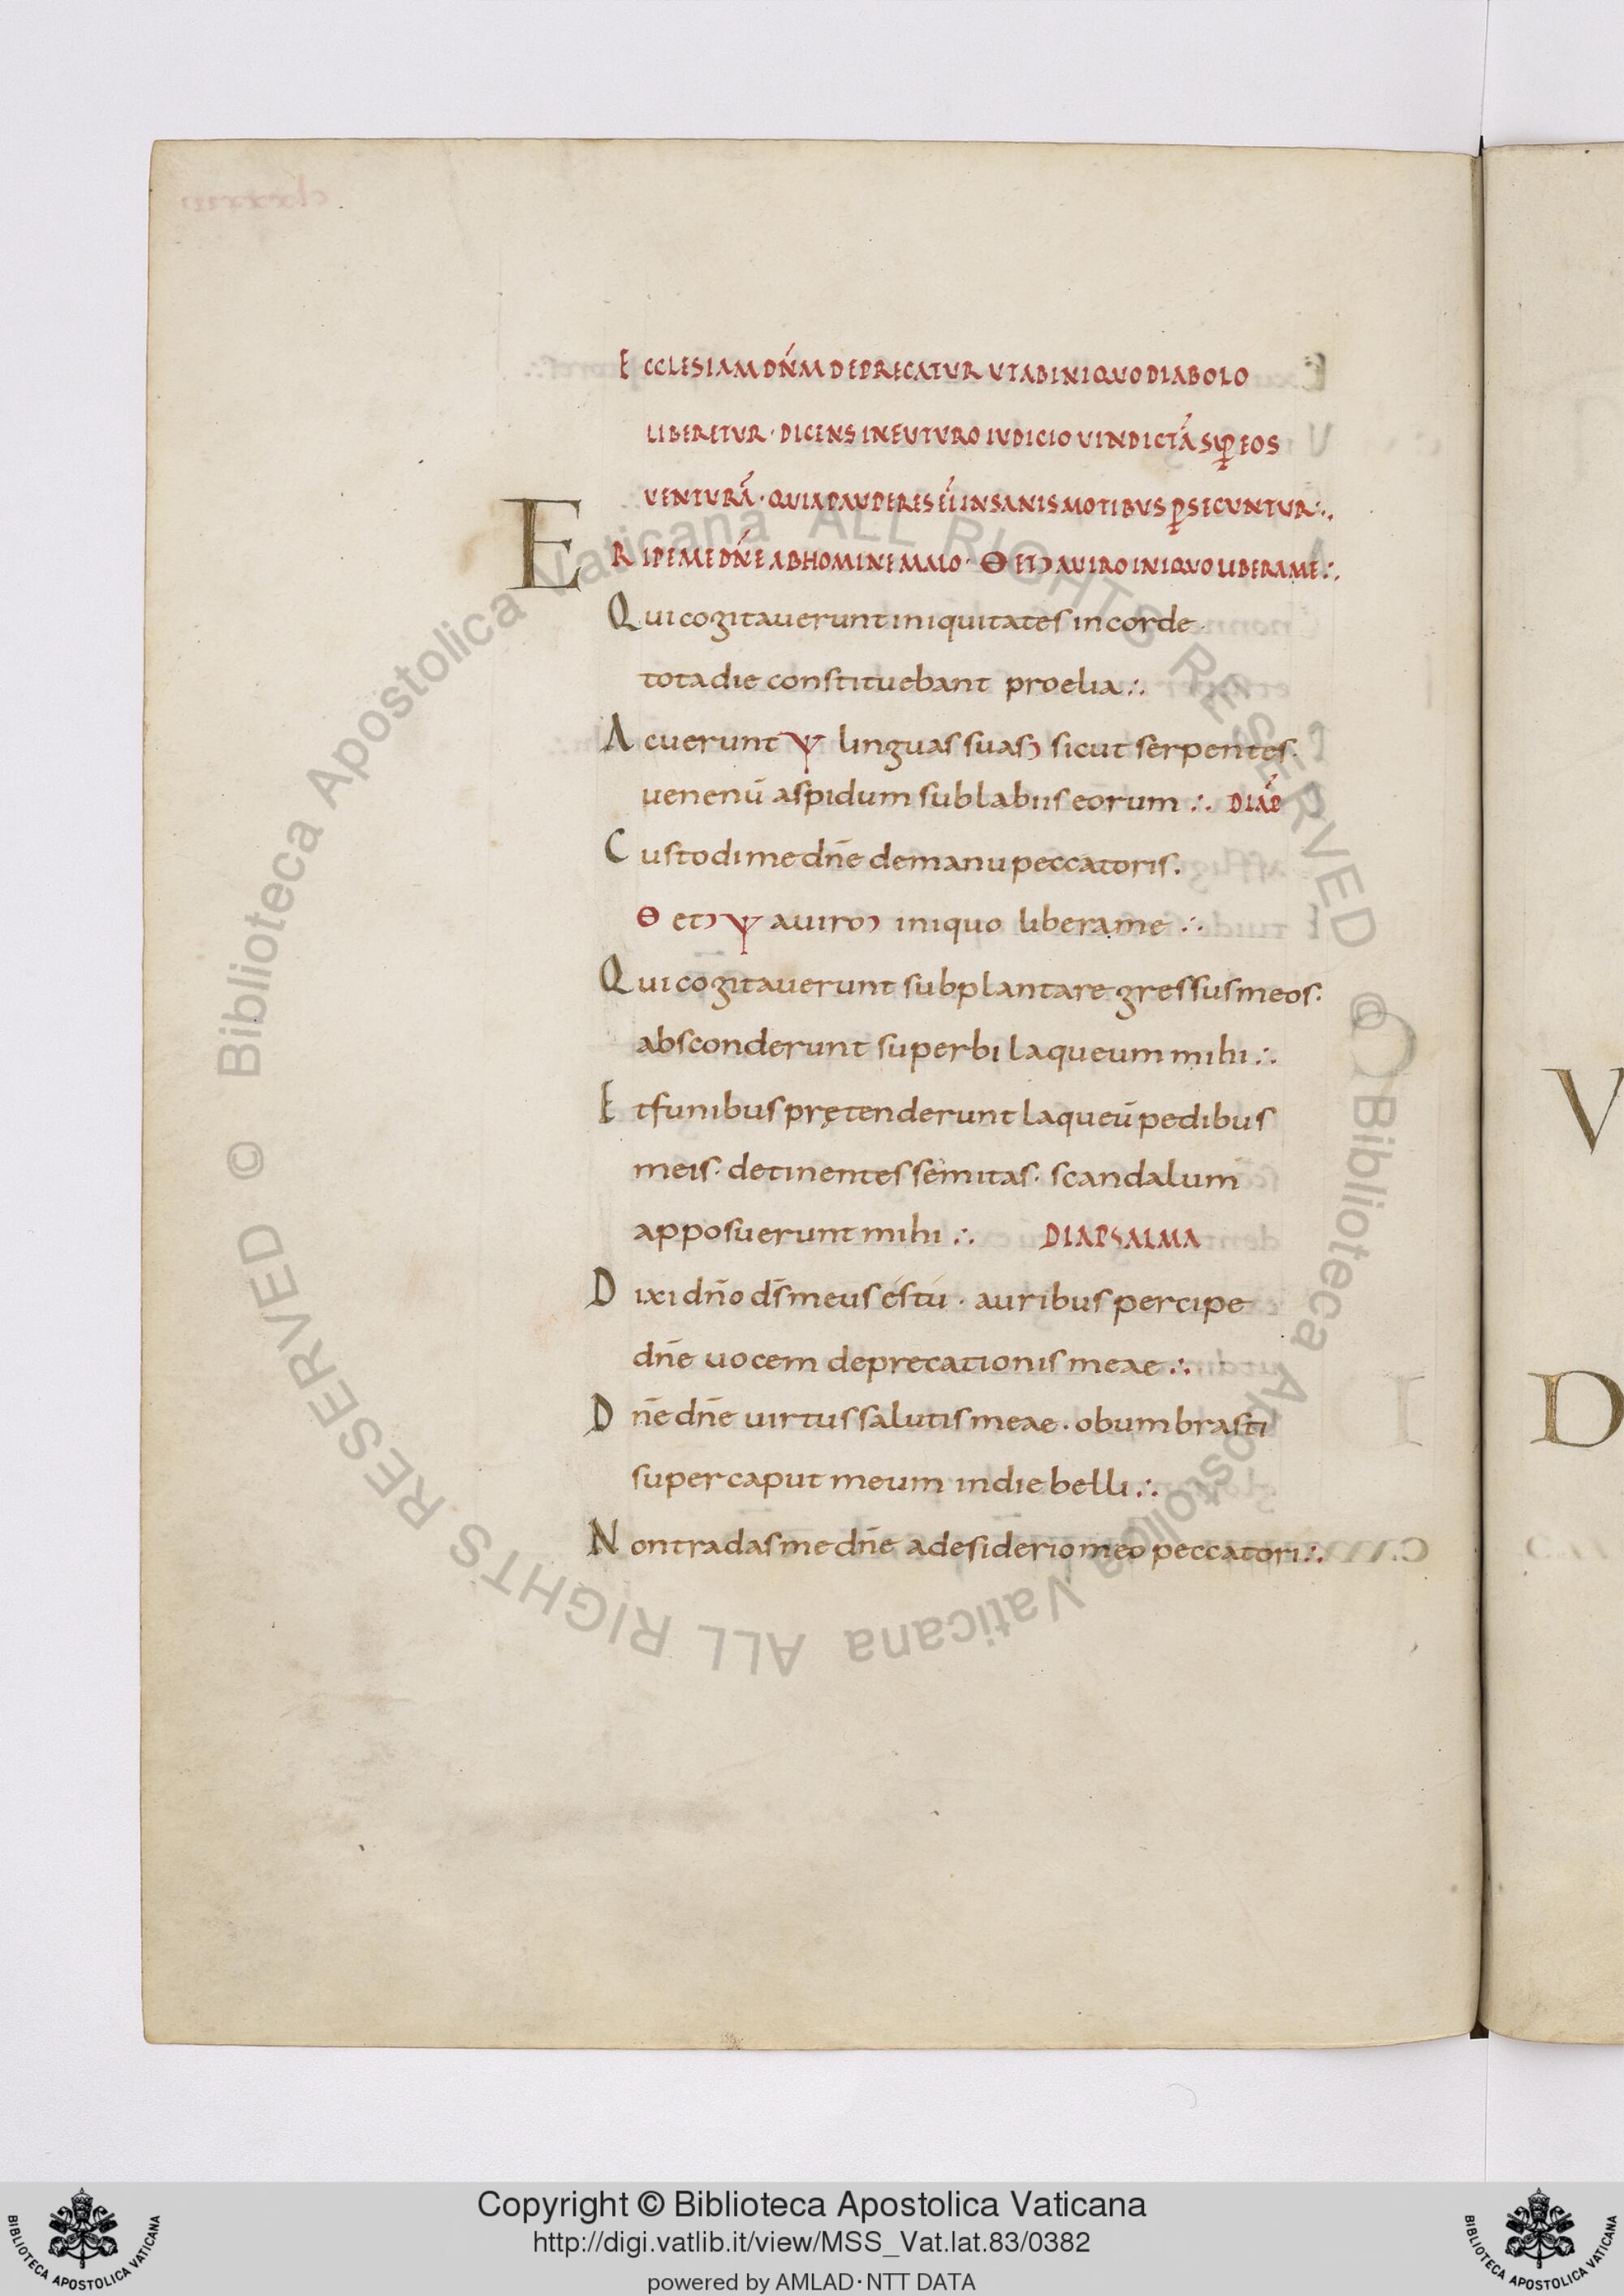 ECCLESIAM DN̄M DEPRECATUR UT AB INIQUO DIABOLO
LIBERETUR · DICENS IN FUTURO IUDICIO UINDICTĀ SUꝐ EOS
UENTURĀ · QUIA PAUPERES EI INSANIS MOTIBUS ꝐSECUNTUR∴
ERIPE ME DN̄E AB HOMINE MALO · Θ ETↃ A UIRO INIQUO LIBERA ME∴
Qui cogitauerunt iniquitates in corde·
tota die constituebant proelia∴
Acuerunt Ψ linguas suasↃ sicut serpentes·
uenenū aspidum sub labiis eorum∴ DIAP̄
Custodi me dn̄e de manu peccatoris.
Θ etↃ Ψ a uiroↃ iniquo libera me∴
Qui cogitauerunt subplantare gressus meos·
absconderunt superbi laqueum mihi∴
Et funibus prętenderunt laqueū pedibus
meis· detinentes semitas· scandalum
apposuerunt mihi∴ DIAPSALMA
Dixi dn̄o ds̄ meus es tu · auribus percipe
dn̄e uocem deprecationis meae∴
Dn̄e dn̄e uirtus salutis meae· obumbrasti
super caput meum in die belli∴
Non tradas me dn̄e a desiderio meo peccatori∴
V
D
© Biblioteca Apostolica Vaticana ALL RIGHTS RESERVED © Biblioteca Apostolica Vaticana ALL RIGHTS RESERVED
Copyright © Biblioteca Apostolica Vaticana
http://digi.vatlib.it/view/MSS_Vat.lat.83/0382
powered by AMLAD·NTT DATA
BIBLIOTECA APOSTOLICA VATICANA
BIBLIOTECA APOSTOLICA VATICANA